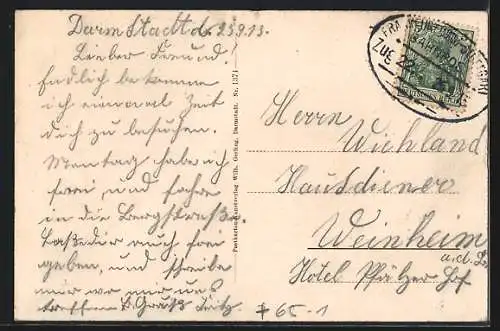 Darmstadt d. 23.9.13.
Lieber Freund!
Endlich bekomme
ich einmal Zeit
dich zu besuchen.
Montag habe ich
frei, und fahre
in die Bergstraße.
Laße dir auch frei
geben, und schreibe
mir wo wir uns
treffen. b. Gruß Fritz
Postkarten-Kunstverlag Wilh. Gerling, Darmstadt. Nr. 1371
FRANKFURT STUTTGART
BAHNPOST
ZUG
Herrn Wiehland
Hausdiener
Weinheim
a. d. B.
Hotel Pfälzer Hof
65-1